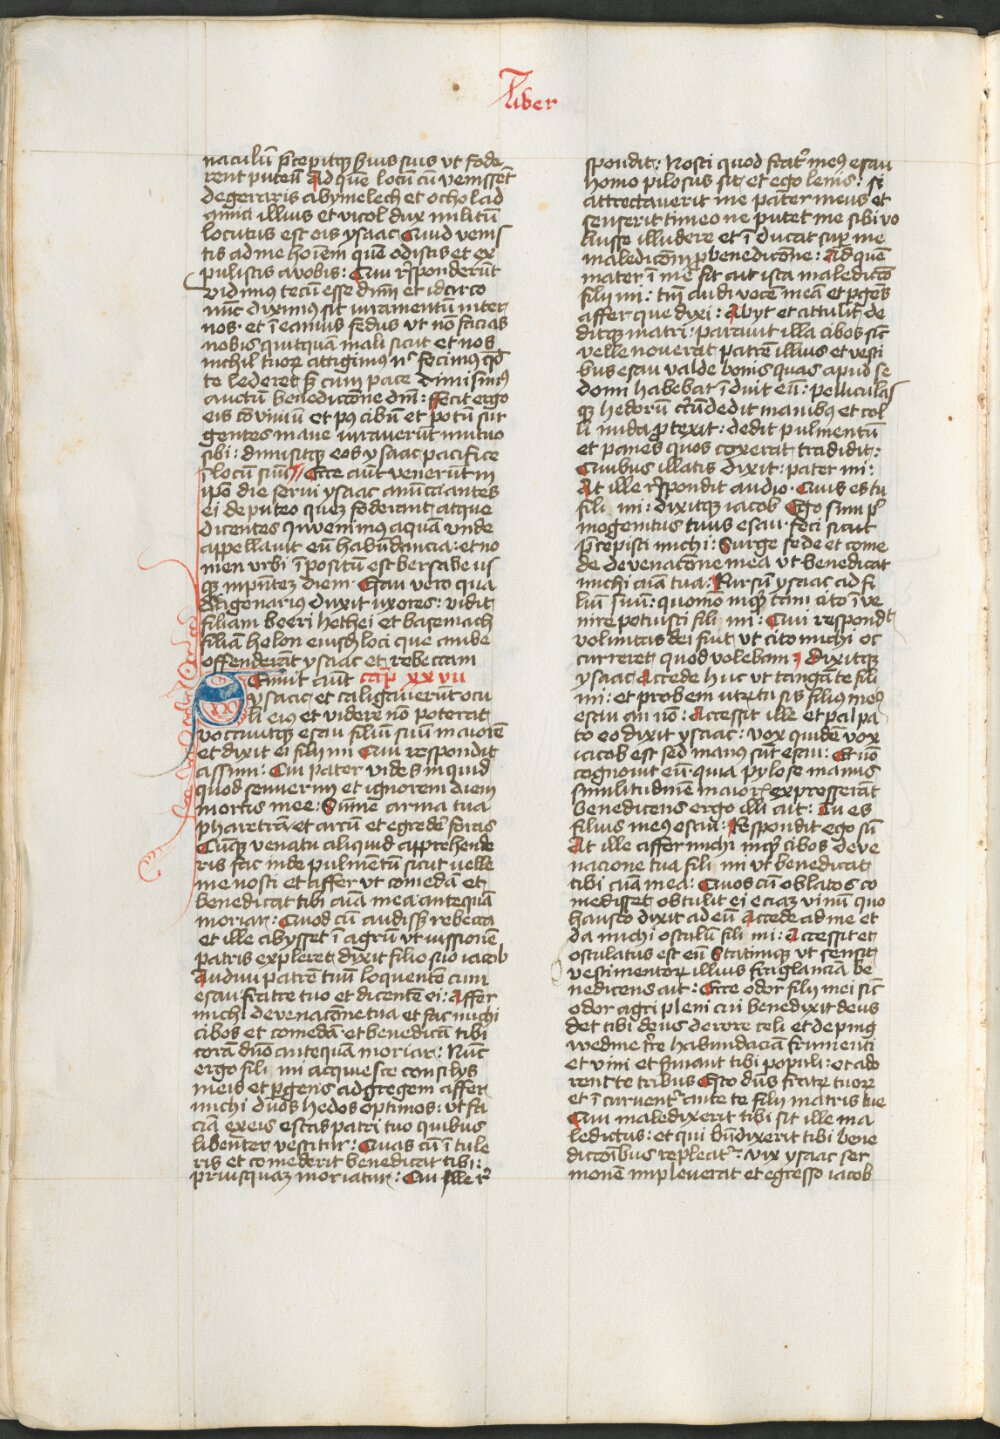 Liber
naculū p̄cepitqꝫ s̄uis suis vt fode
rent puteū Ad quē locū cū venissēt
de geraris abymelech et ochosad
amici illius et vicol dux militū
locutus est eis ysaac Quid venis
tis ad me hoīem quē odistis et ex
pulistis a vobis: Qui r̄sponderūt
vidimus tecū esse dnm̄ et idcirco
nūc diximus sit iuramentū inter
nos et īeamus fedus vt nō facias
nobis quitquā mali sicut et nos
nichil tuorꝫ attigimus nͨ fecimus qd̄
te lederet sꝫ cum pace dimisimꝰ
auctū benedictōne dnī: ffecit ergo
eis cōviuiū et pꝰ cibū et potū sur
gentes mane iurauerūt mutuo
sibi: dimisitqꝫ eos ysaac pacifice
ī locū suū Ecce aūt venerūt in
ip̄o die serui ysaac anūciantes
ei de puteo quez foderant atque
dicentes Invenimus aquā vnde
appellauit eū habūdancia: et no
men vrbi īpositū est bersabe us
qꝫ in p̄ntez diem Esau vero qua
dragenarius duxit vxores: vidit
filiam beeri hethei et basemach
filiā helon eiusdē loci que ambe
offenderāt ysaac et rebeccam
Senuit aūt cap̄ xxvii
ysaac et caligauerūt ocu
li eiꝰ et videre nō poterat
vocauitqꝫ esau filiū suū maiorē
et dixit ei fily mi Qui respondit
assum: Cui pater vides inquid
quod senuerim et ignorem diem
mortis mee: Sume arma tua
pharetrā et arcū et egrede foras
Cūqꝫ venatu aliquid apprehende
ris fac inde pulmentū sicut uelle
me nosti et affer vt comedā et
benedicat tibi aīa mea antequā
moriar: Quod cū audissꝫ rebecca
et ille abysset ī agrū vt iussionē
patris expleret dixit filio suo iacob
Audiui patrē tuū loquentē cum
esau fratre tuo et dicentē ei: Affer
michi de venacōne tua et fac michi
cibos et comedā et benedicā tibi
corā dnō antequā moriar: Nūc
ergo fili mi acquiesce consilys
meis et pergens ad gregem affer
michi duos hedos optimos: vt fa
ciā ex eis escas patri tuo quibus
libenter vescitur: Quas cū ītule
ris et comederit benedicat tibi:
priusquaz moriatur: Cui ille r̄
spondit: Nosti quod frat̄ meꝰ esau
homo pilosus sit et ego lenis: si
attrectauerit me pater meus et
senserit timeo ne putet me sibi vo
luisse illudere et īducat suꝑ me
maledicōnem p benedicōne: Ad quē
mater ī me sit ait ista maledictō
fili mi: tm̄ audi vocē meā et ꝑgēs
affer que dixi: Abyt et attulit de
ditqꝫ matri: parauit illa cibos sic̄
velle nouerat patrē illius et vesti
bus esau valde bonis quas apud se
domi habebat īduit eū: pelliculas
qꝫ hedorū circūdedit manibꝰ et col
li nuda protexit: dedit pulmentū
et panes quos coxerat tradidit:
Quibus illatis dixit: pater mi:
At ille r̄spondit audio Quis es tu
fili mi: dixitqꝫ iacob Ego sum pͥ
mogenitus tuus esau: feci sicut
p̄cepisti michi: Surge sede et come
de de venacōne mea vt benedicat
michi aīa tua: Rursū ysaac ad fi
lium suū: quomō inqꝫ tam cito īve
nire potuisti fili mi: Qui respondꝫ
voluntas dei fuit vt cito michi oc
curreret quod volebam: Dixitqꝫ
ysaac Accede huc vt tangā te fili
mi: et probem vtrꝫ tu sis filius meꝰ
esau an nō: Accessit ille et palpa
to eo dixit ysaac: vox quidē vox
iacob est sed manꝰ sūt esau: Et nō
cognouit eū quia pylose manus
similitudinē maiorꝭ expresserāt
benedicens ergo illi ait: Tu es
filius meꝰ esau: Respondit ego sū
At ille affer michi inqꝫ cibos de ve
nacione tua fili mi vt benedicat
tibi aīa mea: Quos cū oblatos co
medisset obtulit ei eciaz vinū quo
hausto dixit ad eū Accede ad me et
da michi osculū fili mi: Accessit et
osculatus est eū Statimqꝫ vt sensit
vestimentorꝫ illius fraglanciā be
nedicens ait: Ecce odor fily mei sic̄
odor agri pleni cui benedixit deus
det tibi deus de rore celi et de ping
wedine t̄re habundāciā frumenti
et vini et s̄uiant tibi populi: et ado
rent te tribus Esto dn̄s fratrꝫ tuorꝫ
et īcurvent̄ ante te filij matris tue
Qui maledixerit tibi sit ille ma
ledictus: et qui bn̄dixerit tibi bene
dictōnibus repleat̄: vix ysaac ser
monē impleuerat et egresso iacob